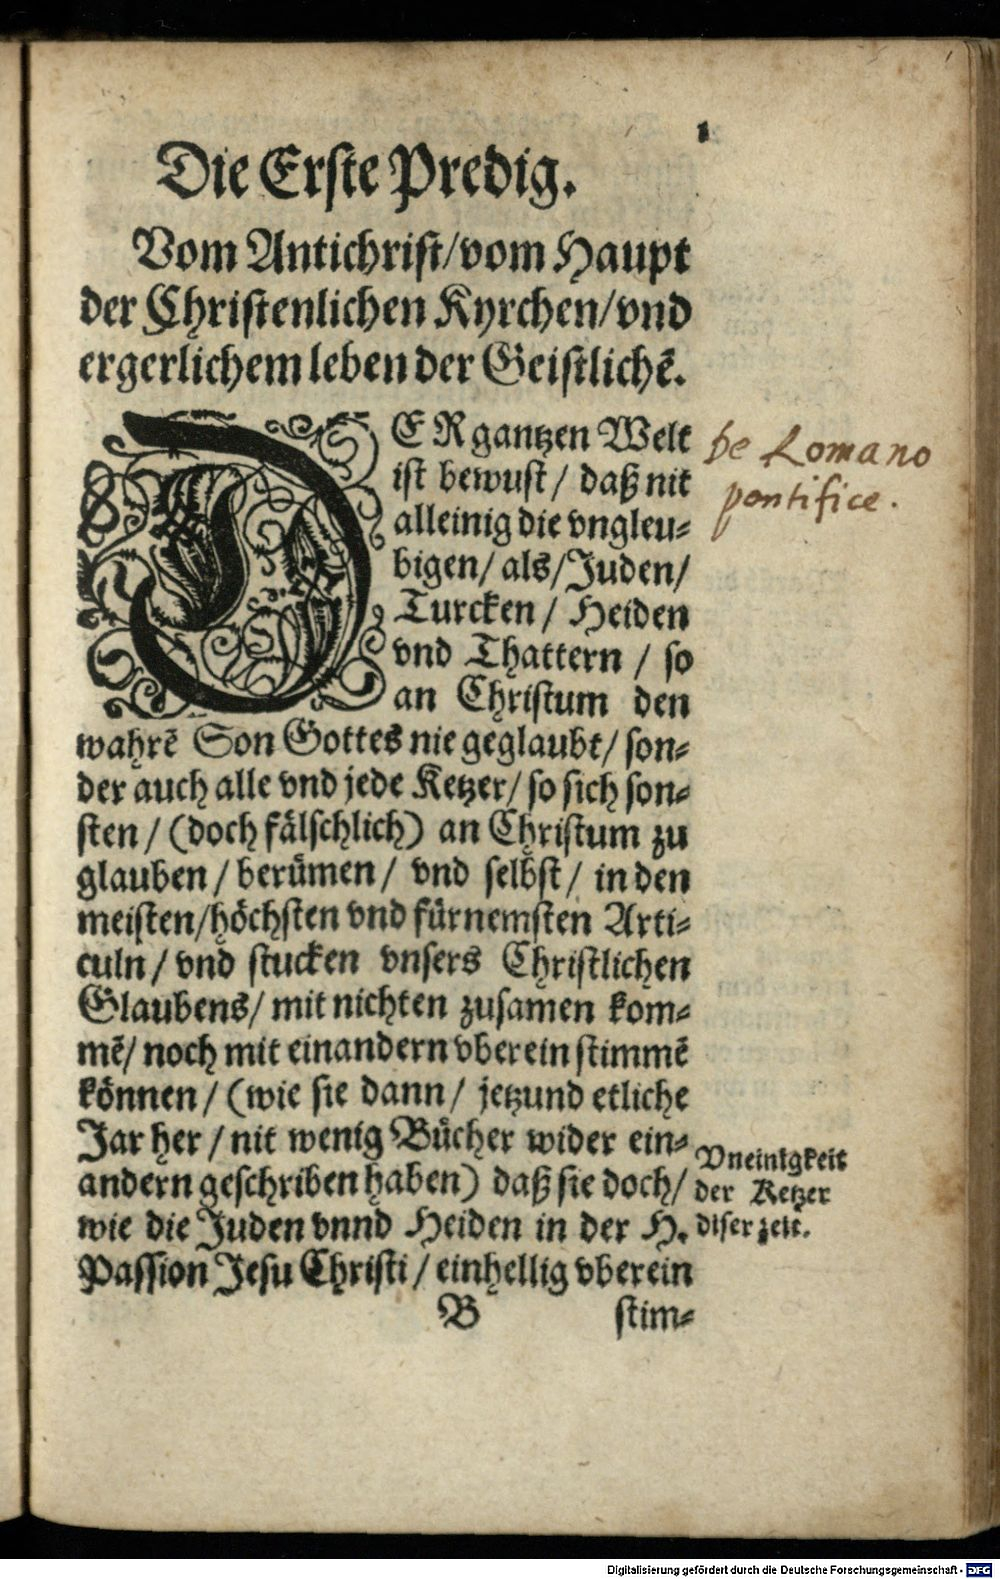 1
Die Erste Predig.
Vom Antichrist/vom Haupt
der Christenlichen Kyrchen/vnd
ergerlichem leben der Geistlichẽ.
DER gantzen Welt
ist bewust/ daß nit
alleinig die vngleu-
bigen/ als/Juden/
Turcken/ Heiden
vnd Thattern / so
an Christum den
wahrẽ Son Gottes nie geglaubt/ son-
der auch alle vnd jede Ketzer/ so sich son-
sten/ (doch fälschlich) an Christum zu
glauben/ berümen/ vnd selbst/ in den
meisten/höchsten vnd fürnemsten Arti-
culn/ vnd stucken vnsers Christlichen
Glaubens/ mit nichten zusamen kom-
mẽ/ noch mit einandern vberein stimmẽ
können/ (wie sie dann/ jetzund etliche
Jar her/ nit wenig Bücher wider ein-
andern geschriben haben) daß sie doch/
wie die Juden vnnd Heiden in der H.
Passion Jesu Christi/ einhellig vberein
B stim-
de Romano
pontifice.
Vneinigkeit
der Ketzer
diser zeit.
Digitalisierung gefördert durch die Deutsche Forschungsgemeinschaft - DFG